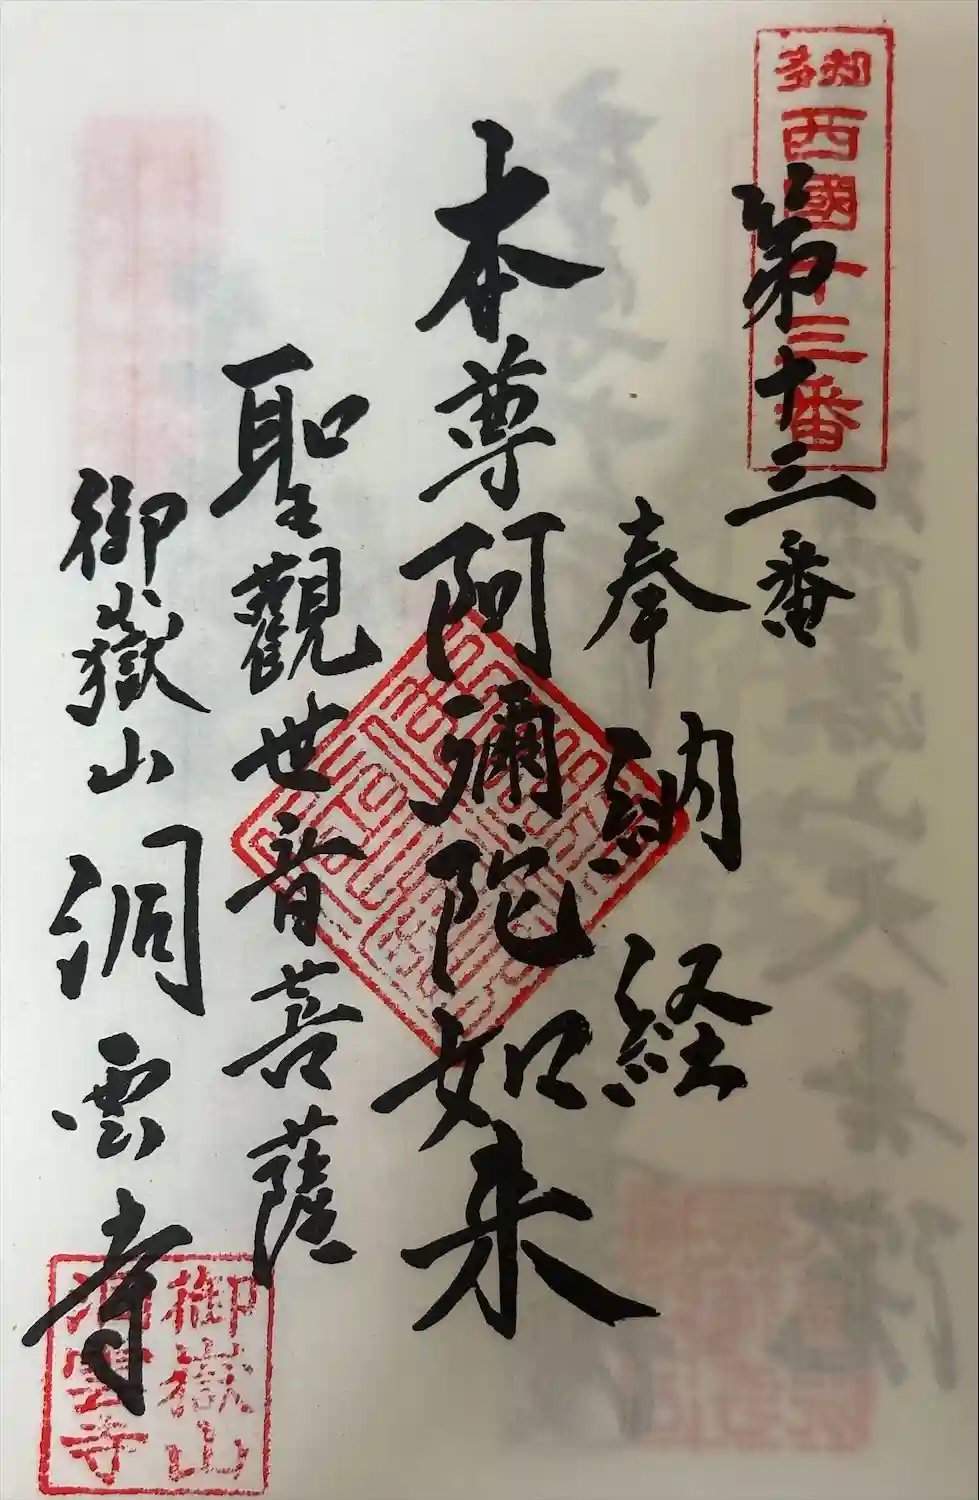 知多
西國
十三番
第十三番
奉納経
本尊阿彌陀如来
聖觀世音菩薩
御嶽山洞雲寺
御嶽山
洞雲寺